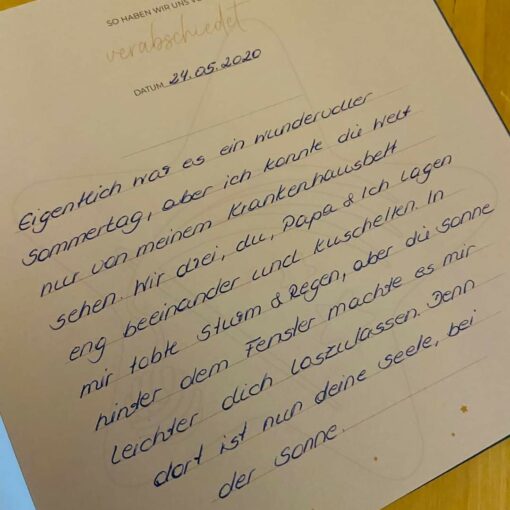 SO HABEN WIR UNS
verabschiedet
DATUM 24.05.2020
Eigentlich war es ein wundervoller
Sommertag, aber ich konnte die Welt
nur von meinem Krankenhausbett
sehen. Wir drei, du, Papa & Ich lagen
eng beeinander und kuschelten. In
mir tobte Sturm & Regen, aber die Sonne
hinter dem Fenster machte es mir
leichter dich loszulassen. Denn
dort ist nun deine Seele, bei
der Sonne.